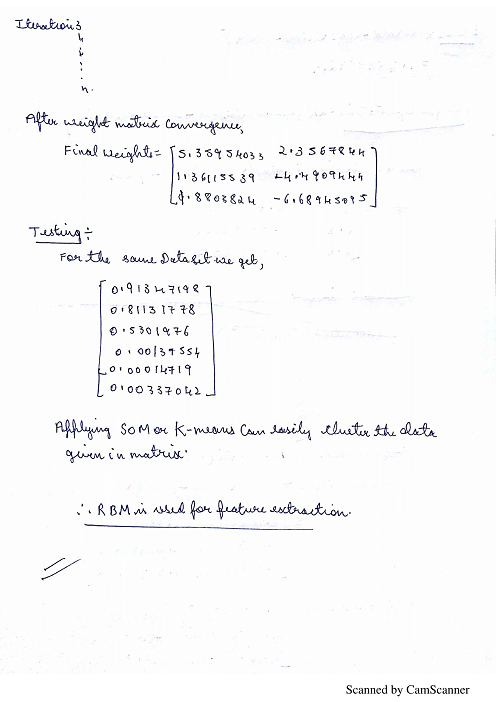 Iteration 3
4
5
:
:
n.
After weight matrix convergence,
Final weights = [5.35954033 2.3567844]
[1.36115539 -4.4909444]
[8.8803824 -6.68945095]
Testing ÷
For the same Dataset we get,
[0.91347198]
0.81131778
0.5301976
0.00139554
0.00014719
[0.00337042]
Applying SOM or K-means can easily cluster the data
given in matrix.
∴ RBM is used for feature extraction.
Scanned by CamScanner